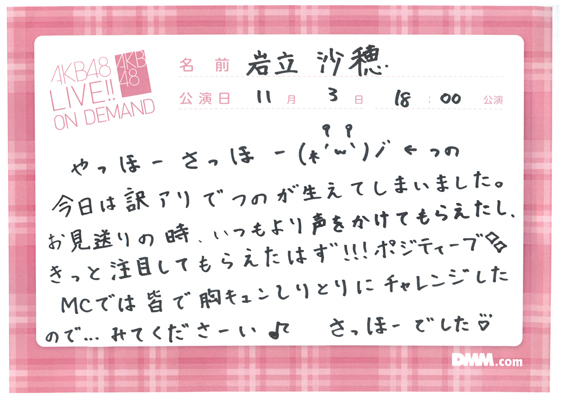 AKB48
LIVE!!
ON DEMAND
AKB
48
名前 岩立 沙穂
公演日 11月 3日 18:00 公演
やっほーさっほー(*'ω')ノ ←つの
今日は訳アリでつのが生えてしまいました。
お見送りの時、いつもより声をかけてもらえたし、
きっと注目してもらえたはず!!!ポジティーブ
MCでは皆で胸キュンしりとりにチャレンジした
ので…みてくださーい♪ さっほーでした♡
DMM.com